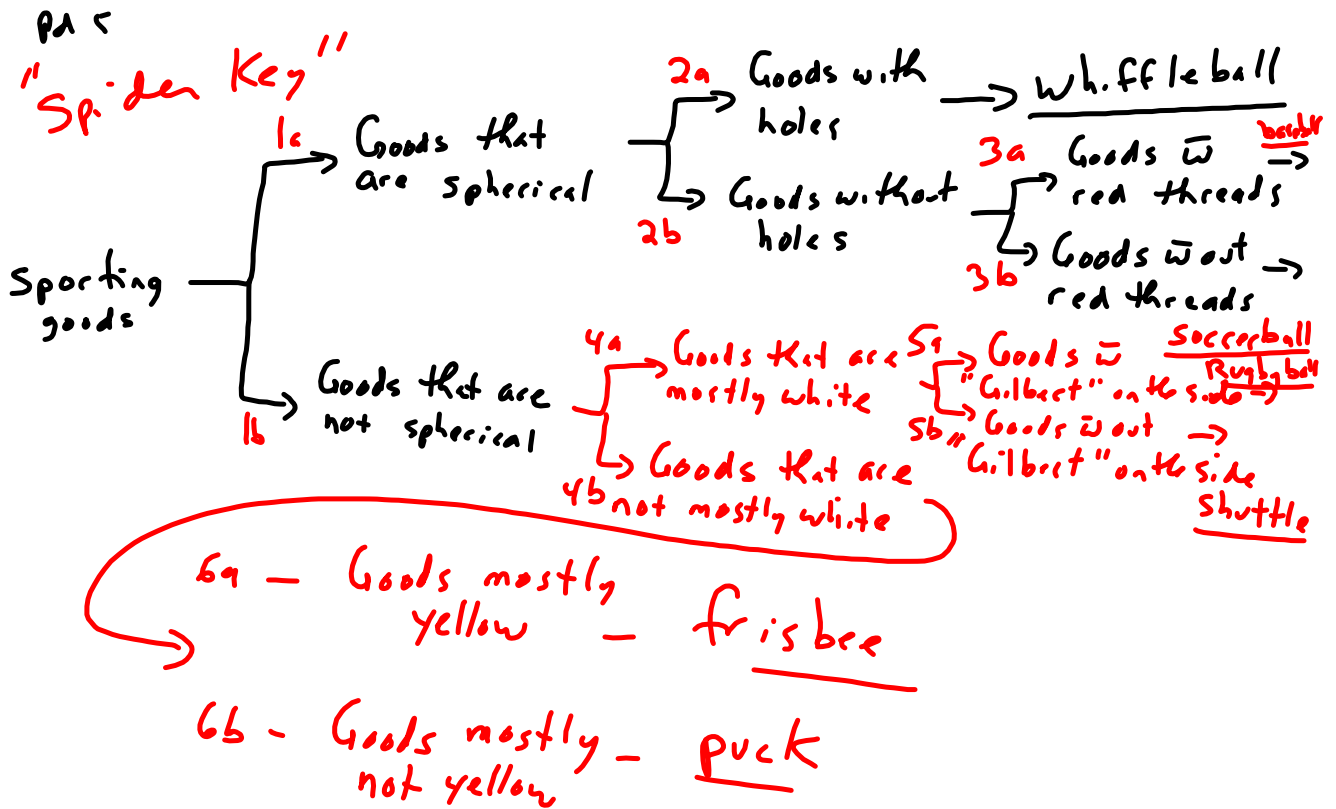 pd 5
"Spider Key"
Sporting
goods
1a
Goods that
are spherical
1b
Goods that are
not spherical
2a
Goods with
holes
whiffleball
2b
Goods without
holes
3a
Goods w̄
red threads
baseball
3b
Goods w̄out
red threads
soccerball
4a
Goods that are
mostly white
4b
Goods that are
not mostly white
5a
Goods w̄
"Gilbert" on the side
Rugbyball
5b
Goods w̄out
"Gilbert" on the side
shuttle
6a – Goods mostly
yellow – frisbee
6b – Goods mostly
not yellow – puck